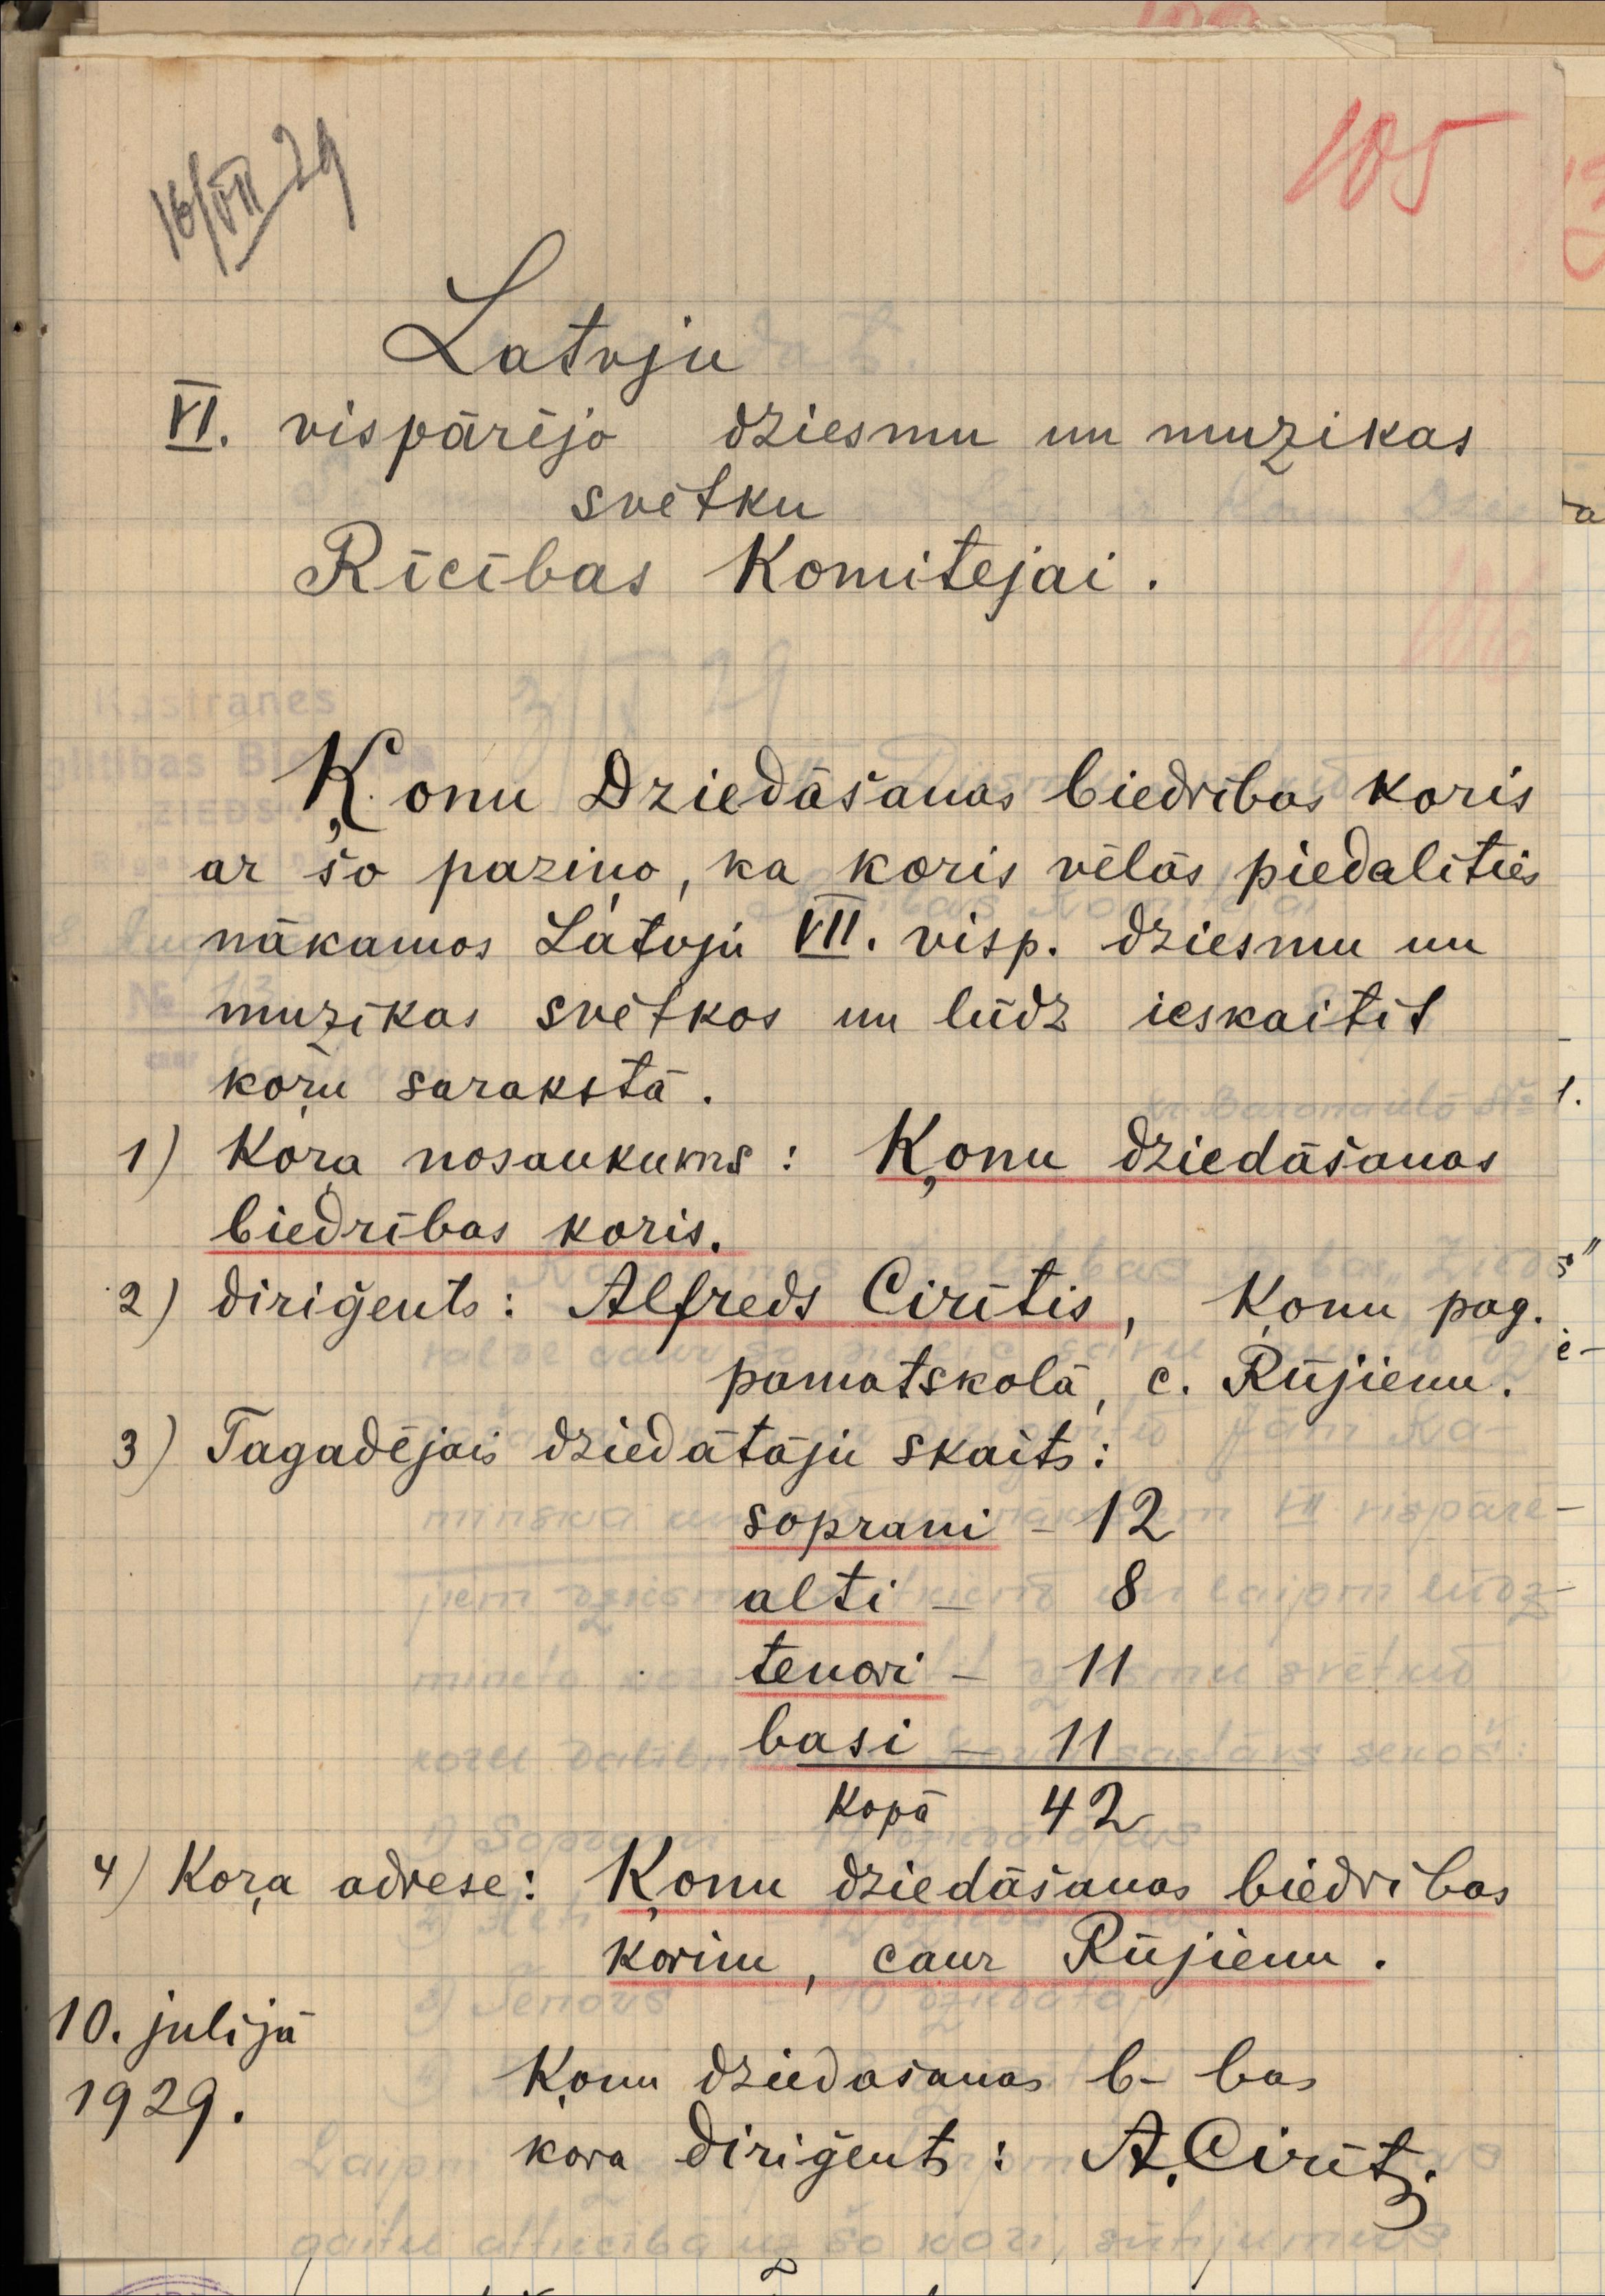 105
16/VII 29
Latvju
VI. vispārējo dziesmu un muzikas
svētku
Rīcības Komitejai.
Ķonu Dziedāšanas biedrības koris
ar šo paziņo, ka koris vēlās piedalīties
nākamos Latvju VII. visp. dziesmu un
muzikas svētkos un lūdz ieskaitīt
koŗu sarakstā.
1) Koŗa nosaukums: Ķonu dziedāšanas
biedrības koris.
2) diriģents: Alfreds Cirītis, Ķonu pag.
pamatskolā, c. Rūjienu.
3) Tagadējais dziedātāju skaits:
soprani - 12
alti - 8
tenori - 11
basi - 11
Kopā 42
4) Koŗa adrese: Ķonu dziedāšanas biedrības
korim, caur Rūjienu.
10. julijā
1929.
Ķonu dziedašanas b-bas
kora diriģents: A. Cirīt